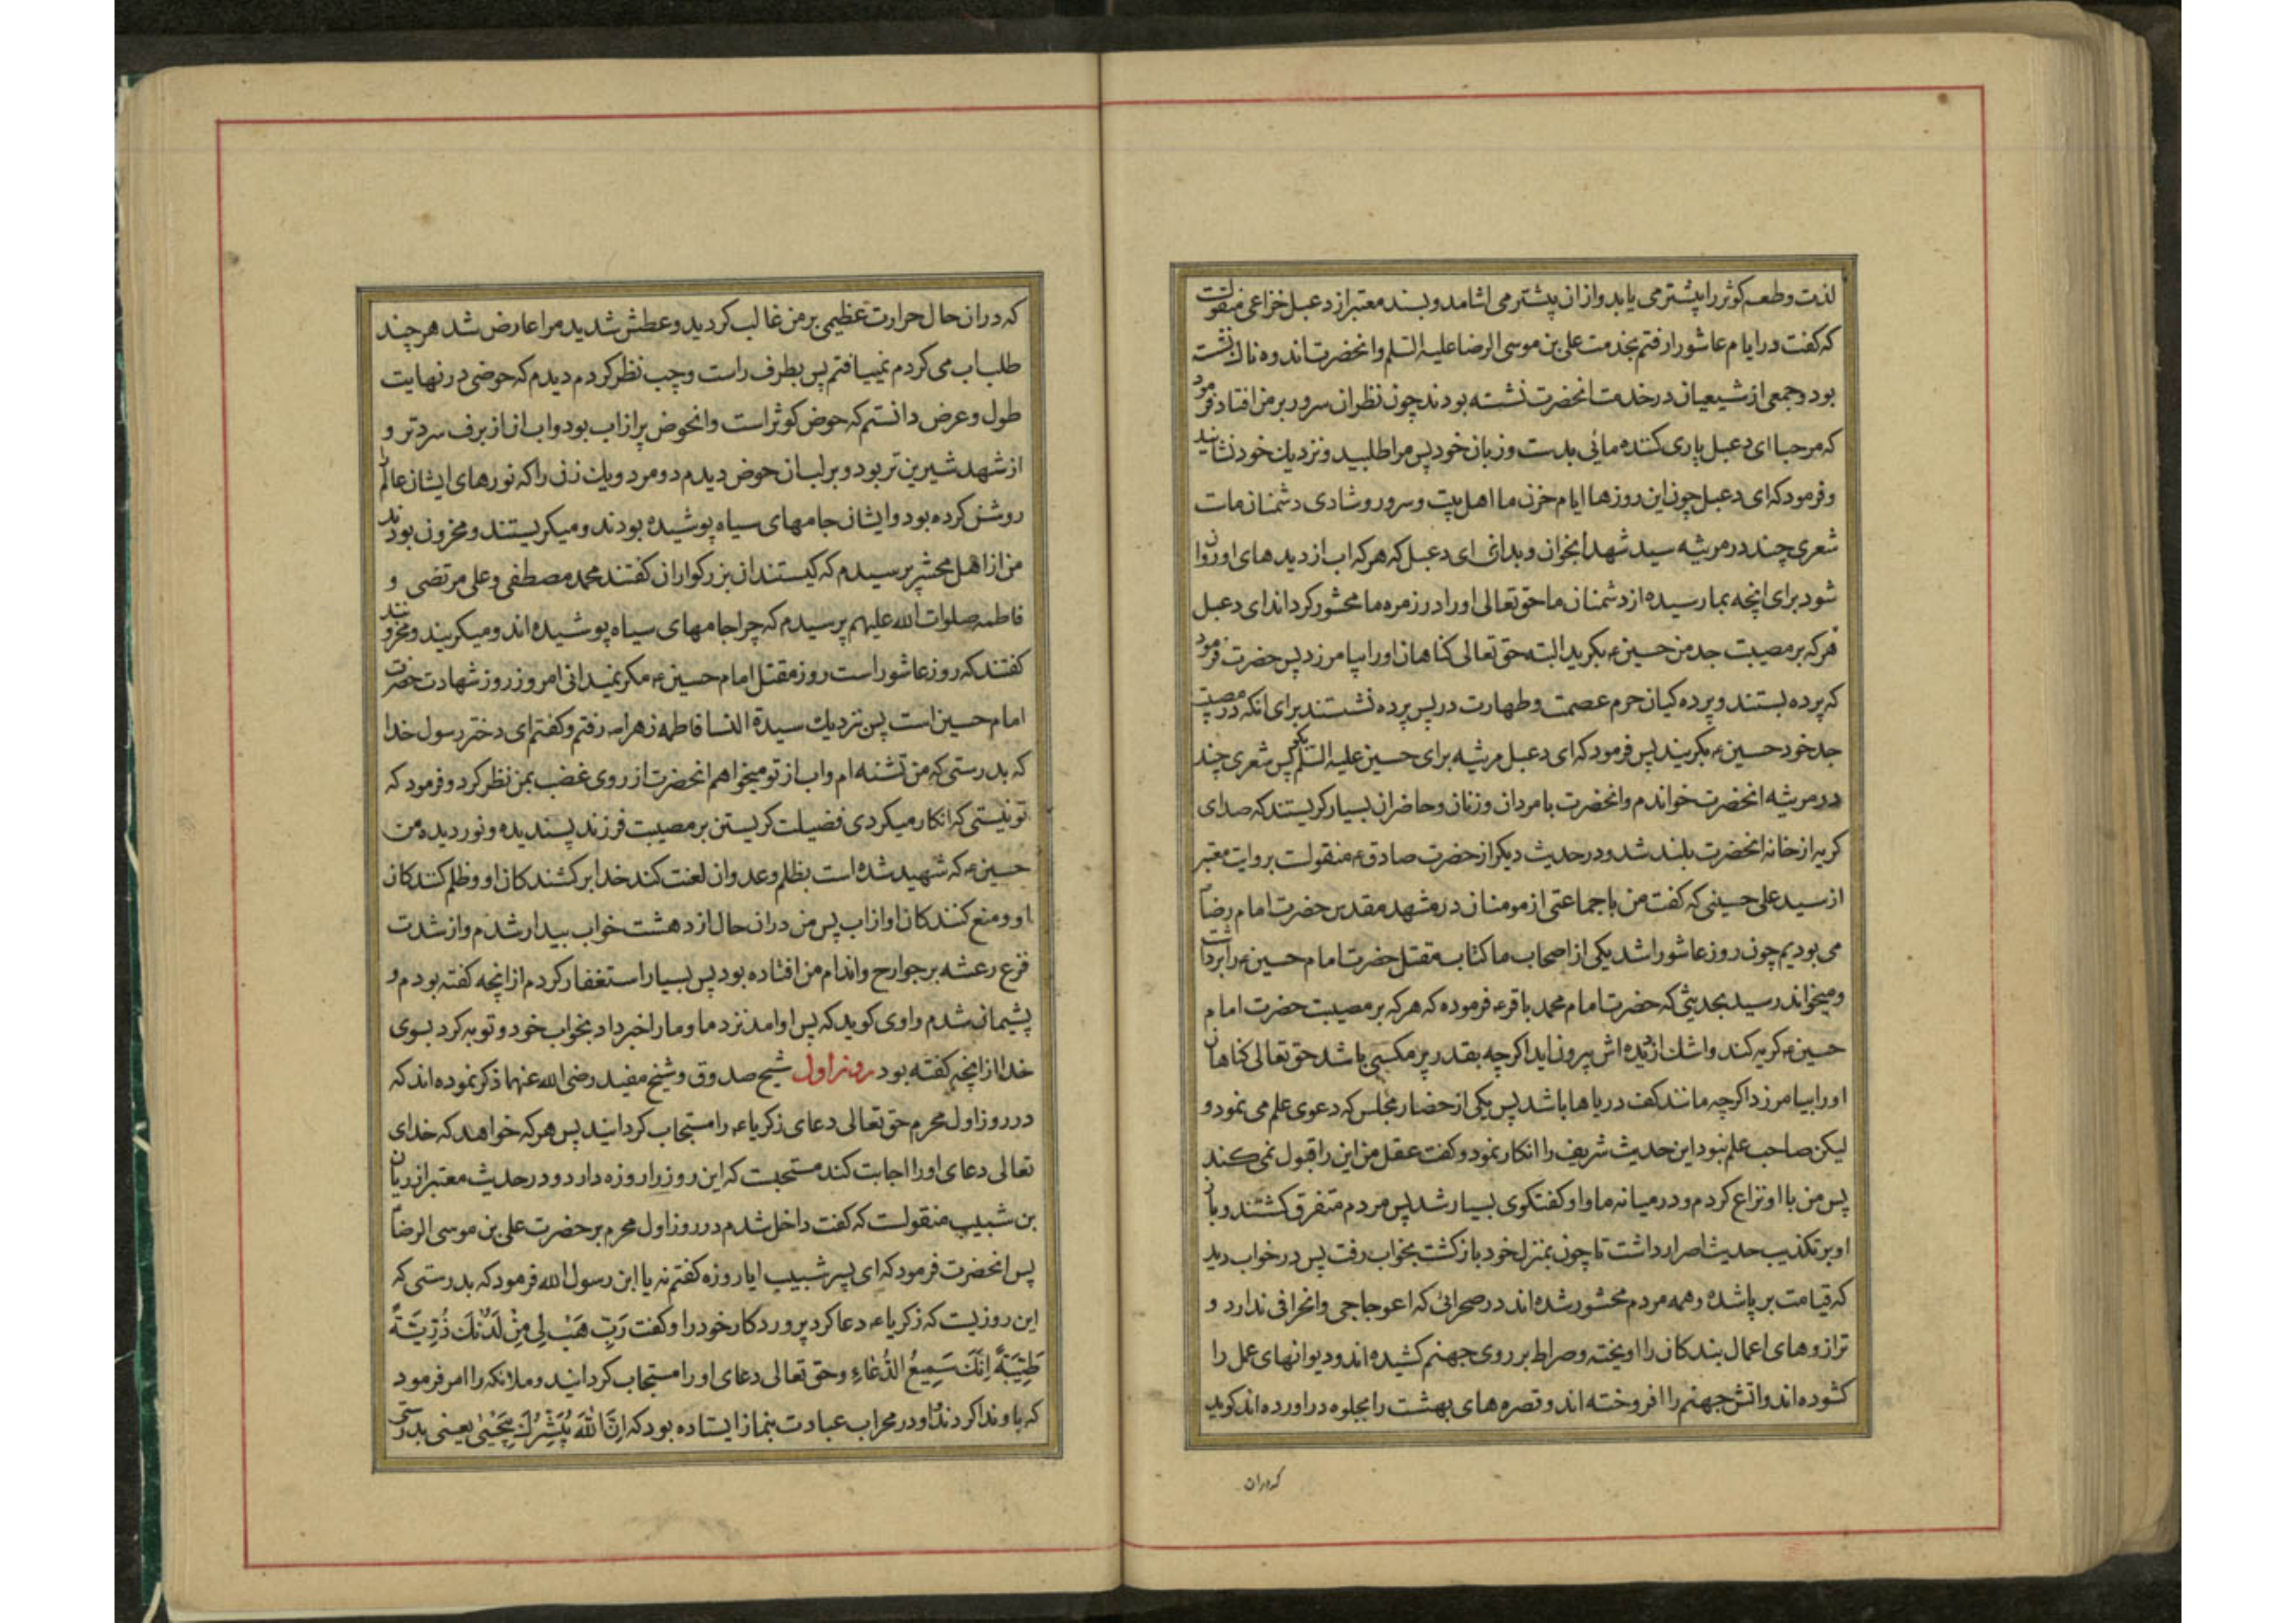 لذت و طعم کوثر را بیشتر می یابد و از ان بیشتر می اشامد و بسند معتبر از دعبل خزاعی منقولست
که کفت در ایام عاشورا رفتم بخدمت علی بن موسی الرضا علیه السلم و انحضرت اندوهناک نشسته
بود و جمعی از شیعیان در خدمت انحضرت نشسته بودند چون نظر ان سرور بر من افتاد فرمود
که مرحبا ای دعبل یاری کننده مائی بدست و زبان خود پس مرا طلبید و نزدیک خود نشانید
و فرمود که ای دعبل چون این روزها ایام حزن ما اهل بیت و سرور و شادی دشمنان ماست
شعری چند در مرثیه سید شهدا بخوان و بدانی ای دعبل که هر که اب از دیدهای او روان
شود برای انچه بما رسیده از دشمنان ما حق تعالی او را در زمره ما محشور کرداند ای دعبل
هر که بر مصیبت جد من حسین ع بکرید البته حق تعالی کناهان او را بیامرزد پس حضرت فرمود
که پرده بستند و پرده کیان حرم عصمت و طهارت در پس پرده نشستند برای انکه در مصیبت
جد خود حسین ع بکریند پس فرمود که ای دعبل مرثیه برای حسین علیه السلم بکو پس شعری چند
در مرثیه انحضرت خواندم و انحضرت با مردان و زنان و حاضران بسیار کریستند که صدای
کریه از خانه انحضرت بلند شد و در حدیث دیکر از حضرت صادق ع منقولست بروایت معتبر
از سید علی حسینی که کفت من با جماعتی از مومنان در مشهد مقدس حضرت امام رضا ع
می بودیم چون روز عاشورا شد یکی از اصحاب ما کتاب مقتل حضرت امام حسین ع را برداشت
و میخواند رسید بحدیثی که حضرت امام محمد باقر ع فرموده که هر که بر مصیبت حضرت امام
حسین ع کریه کند و اشک از دیده اش بیرون اید اکرچه بقدر پر مکسی باشد حق تعالی کناهان
او را بیامرزد اکرچه مانند کف دریاها باشد پس یکی از حضار مجلس که دعوی علم می نمود و
لیکن صاحب علم نبود این حدیث شریف را انکار نمود و کفت عقل من این را قبول نمی کند
پس من با او نزاع کردم و در میانه ما و او کفتکوی بسیار شد پس مردم متفرق کشتند و بان
او بر تکذیب حدیث اصرار داشت تا چون بمنزل خود باز کشت بخواب رفت پس در خواب دید
که قیامت بر پا شده و همه مردم محشور شده اند در صحرائی که اعوجاجی و انحرافی ندارد و
ترازوهای اعمال بندکان را اویخته و صراط بر روی جهنم کشیده اند و دیوانهای عمل را
کشوده اند و اتش جهنم را افروخته اند و قصرهای بهشت را بجلوه در اورده اند کوید
که دران
که در ان حال حرارت عظیمی بر من غالب کردید و عطش شدید مرا عارض شد هر چند
طلب اب می کردم نمییافتم پس بطرف راست و چپ نظر کردم دیدم که حوضی در نهایت
طول و عرض دانستم که حوض کوثر است و انحوض پر از اب بود و اب ان از برف سردتر و
از شهد شیرین تر بود و بر لب ان حوض دیدم دو مرد و یک زنی را که نورهای ایشان عالم را
روشن کرده بود و ایشان جامهای سیاه پوشیده بودند و میکریستند و محزون بودند
من از اهل محشر پرسیدم که کیستند ان بزرکواران کفتند محمد مصطفی و علی مرتضی و
فاطمه صلوات الله علیهم پرسیدم که چرا جامهای سیاه پوشیده اند و میکریند و محزونند
کفتند که روز عاشورا است روز مقتل امام حسین ع مکر نمیدانی امروز روز شهادت حضرت
امام حسین است پس نزدیک سیدة النسا فاطمه زهرا رفتم و کفتم ای دختر رسول خدا
که بدرستی که من تشنه ام و اب از تو میخواهم انحضرت از روی غضب بمن نظر کرد و فرمود که
تو نیستی که انکار میکردی فضیلت کریستن بر مصیبت فرزند پسندیده و نور دیده من
حسین ع که شهید شده است بظلم و عدوان لعنت کند خدا بر کشندکان او و ظلم کنندکان
او و منع کنندکان او از اب پس من در ان حال از دهشت خواب بیدار شدم و از شدت
فزع رعشه بر جوارح و اندام من افتاده بود پس بسیار استغفار کردم از انچه کفته بودم و
پشیمان شدم راوی کوید که پس او امد نزد ما و ما را خبر داد بخواب خود و توبه کرد بسوی
خدا از انچه کفته بود روز اول شیخ صدوق و شیخ مفید رضی الله عنهما ذکر نموده اند که
در روز اول محرم حق تعالی دعای زکریا ع را مستجاب کردانید پس هر که خواهد که خدای
تعالی دعای او را اجابت کند مستحبست که این روز را روزه دارد و در حدیث معتبر از ریان
بن شبیب منقولست که کفت داخل شدم در روز اول محرم بر حضرت علی بن موسی الرضا ع
پس انحضرت فرمود که ای پسر شبیب ایا روزه کفتم نه یا ابن رسول الله فرمود که بدرستی که
این روزیست که زکریا ع دعا کرد پروردکار خود را و کفت رَبِّ هَبْ لِی مِنْ لَدُنْكَ ذُرِّیَّةً
طَیِّبَةً اِنَّكَ سَمِیعُ الدُّعَاءِ و حق تعالی دعای او را مستجاب کردانید و ملائکه را امر فرمود
که باو ندا کردند و او در محراب عبادت بنماز ایستاده بود که اِنَّ اللهَ یُبَشِّرُكَ بِیَحْییٰ یعنی بدرستی